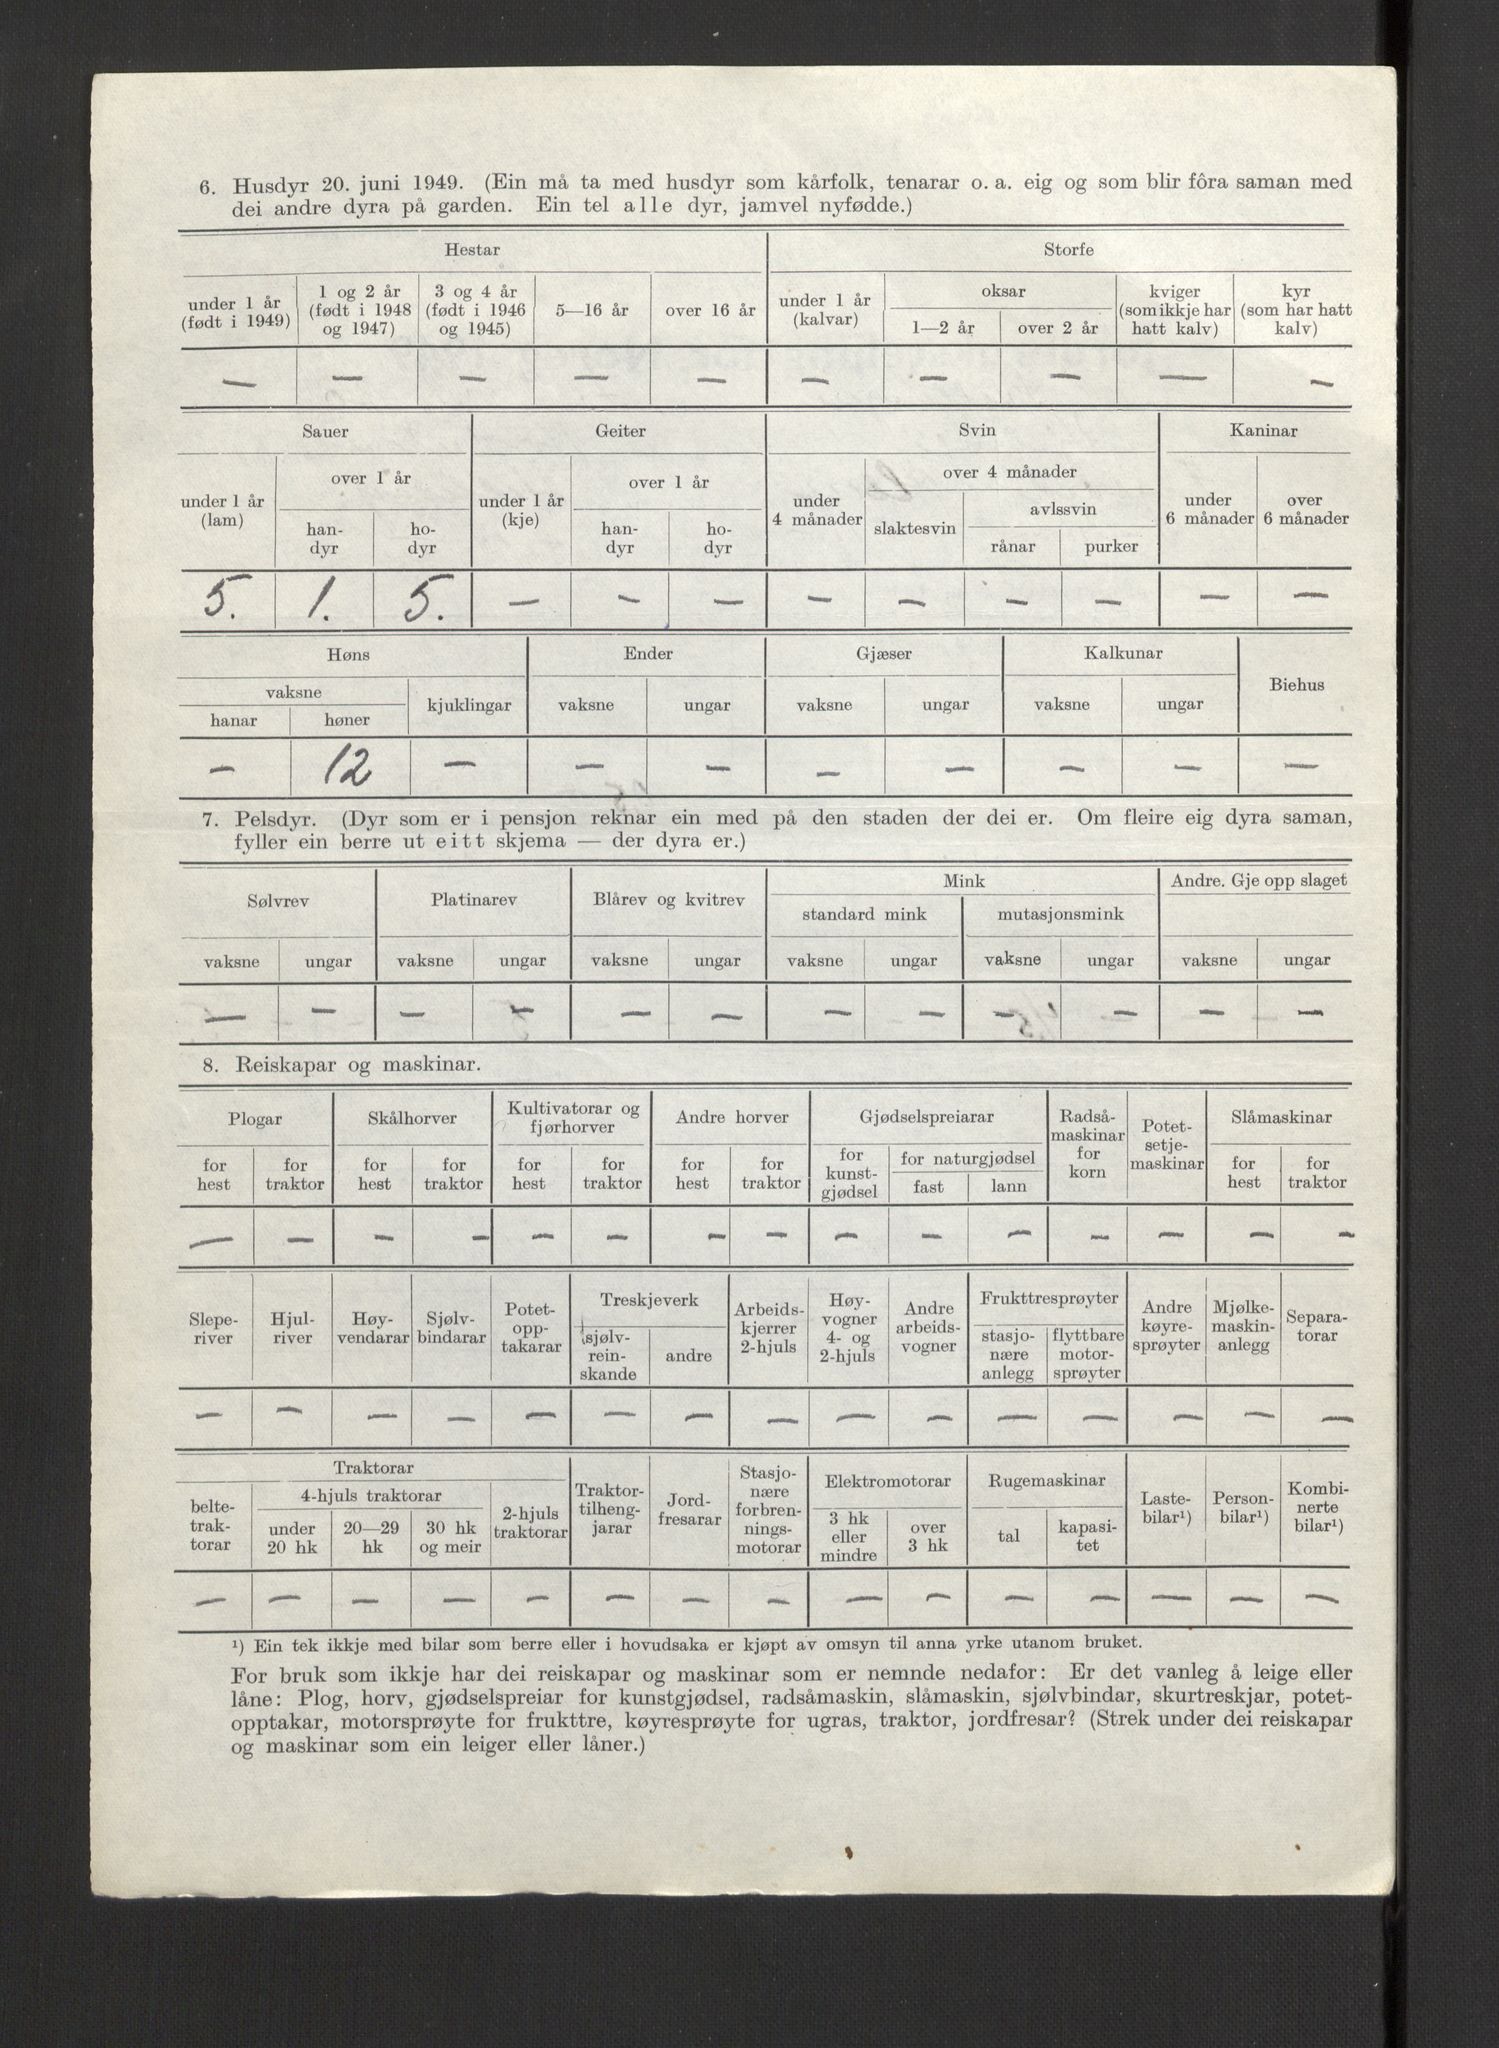 6. Husdyr 20. juni 1949. (Ein må ta med husdyr som kårfolk, tenarar o. a. eig og som blir fôra saman med
dei andre dyra på garden. Ein tel alle dyr, jamvel nyfødde.)
Hestar Storfe
under 1 år (født i 1949) 1 og 2 år (født i 1948 og 1947) 3 og 4 år (født i 1946 og 1945) 5—16 år over 16 år under 1 år (kalvar) oksar 1—2 år over 2 år kviger (som ikkje har hatt kalv) kyr (som har hatt kalv)
— — — — — — — — — —
Sauer Geiter Svin Kaninar
under 1 år (lam) over 1 år handyr hodyr under 1 år (kje) over 1 år handyr hodyr under 4 månader over 4 månader slaktesvin avlssvin rånar purker under 6 månader over 6 månader
5. 1. 5. — — — — — — — — —
Høns Ender Gjæser Kalkunar Biehus
vaksne hanar høner kjuklingar vaksne ungar vaksne ungar vaksne ungar
— 12 — — — — — — — —
7. Pelsdyr. (Dyr som er i pensjon reknar ein med på den staden der dei er. Om fleire eig dyra saman,
fyller ein berre ut eitt skjema — der dyra er.)
Sølvrev Platinarev Blårev og kvitrev Mink Andre. Gje opp slaget
standard mink mutasjonsmink
vaksne ungar vaksne ungar vaksne ungar vaksne ungar vaksne ungar vaksne ungar
— — — — — — — — — — — —
8. Reiskapar og maskinar.
Plogar Skålhorver Kultivatorar og fjørhorver Andre horver Gjødselspreiarar Radsåmaskinar for korn Potetsetjemaskinar Slåmaskinar
for hest for traktor for hest for traktor for hest for traktor for hest for traktor for kunstgjødsel for naturgjødsel fast lann for hest for traktor
— — — — — — — — — — — — — — —
Sleperiver Hjulriver Høyvendarar Sjølvbindarar Potetopptakarar Treskjeverk sjølvreinskande andre Arbeidskjerrer 2-hjuls Høyvogner 4- og 2-hjuls Andre arbeidsvogner Frukttresprøyter stasjonære anlegg flyttbare motorsprøyter Andre køyresprøyter Mjølkemaskinanlegg Separatorar
— — — — — — — — — — — — — — —
Traktorar Traktortilhengjarar Jordfresarar Stasjonære forbrenningsmotorar Elektromotorar Rugemaskinar Lastebilar¹) Personbilar¹) Kombinerte bilar¹)
beltetraktorar 4-hjuls traktorar under 20 hk 20—29 hk 30 hk og meir 2-hjuls traktorar 3 hk eller mindre over 3 hk tal kapasitet
— — — — — — — — — — — — — — —
¹) Ein tek ikkje med bilar som berre eller i hovudsaka er kjøpt av omsyn til anna yrke utanom bruket.
For bruk som ikkje har dei reiskapar og maskinar som er nemnde nedafor: Er det vanleg å leige eller
låne: Plog, horv, gjødselspreiar for kunstgjødsel, radsåmaskin, slåmaskin, sjølvbindar, skurtreskjar, potet-
opptakar, motorsprøyte for frukttre, køyresprøyte for ugras, traktor, jordfresar? (Strek under dei reiskapar
og maskinar som ein leiger eller låner.)